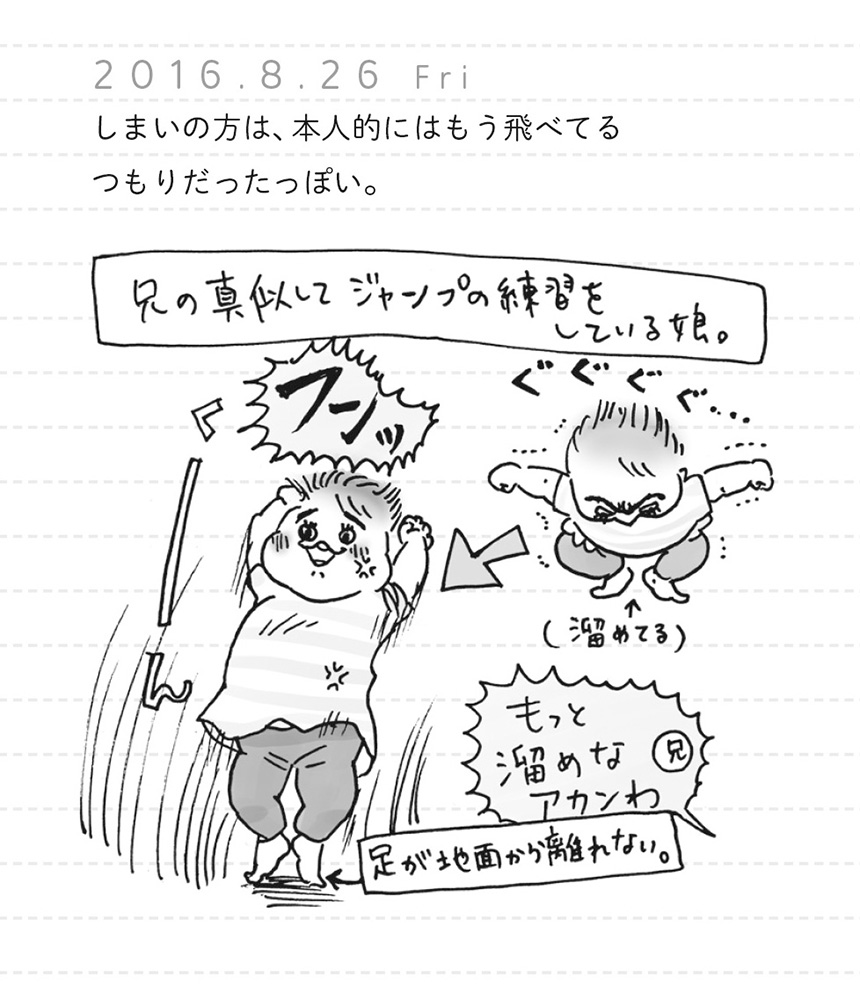 2016.8.26 Fri
しまいの方は、本人的にはもう飛べてる
つもりだったっぽい。
兄の真似してジャンプの練習を
している娘。
ぐぐぐぐ…
(溜めてる)
フンッ
くーーん
もっと
溜めな
アカンわ
兄
足が地面から離れない。